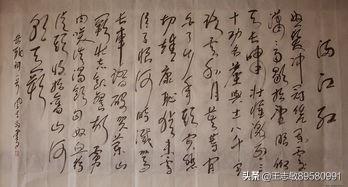 满江红
怒发冲冠凭栏处
潇潇雨歇抬望眼仰
天长啸壮怀激烈三
十功名尘与土八千里
路云和月莫等闲
白了少年头空悲
切靖康耻犹未雪
臣子恨何时灭驾
长车踏破贺兰山
缺壮志饥餐胡虏
肉笑谈渴饮匈奴血待
从头收拾旧山河
朝天阙
头条@王志敏89580991